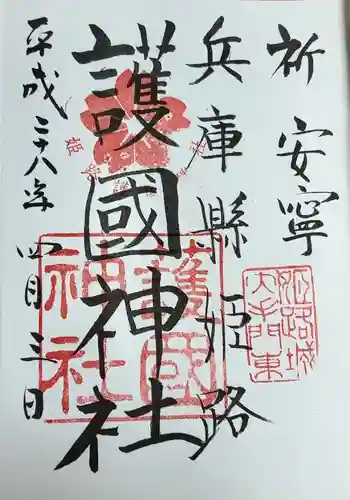 祈安寧
兵庫縣姫路
護國神社
平成二十八年四月三日
護國
神社
姫路城
大手門東